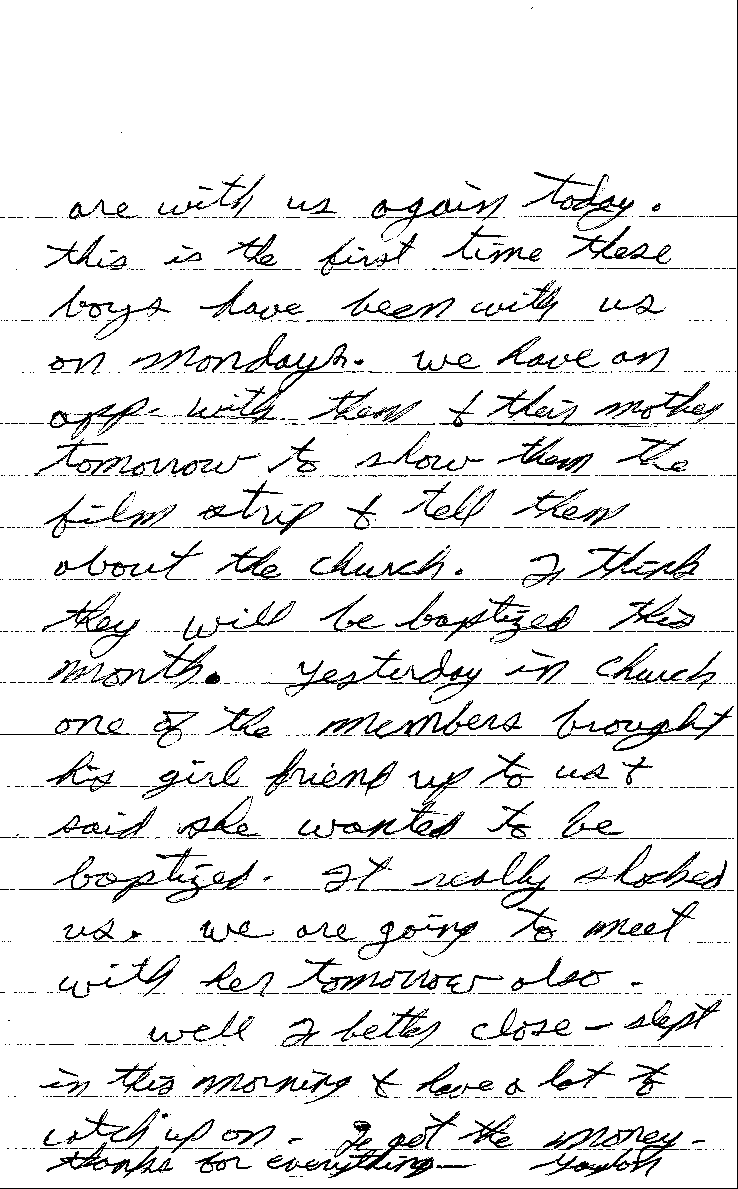 are with us again today.
this is the first time these
boys have been with us
on mondays. we have an
app. with them & their mother
tomorrow to show them the
film strip & tell them
about the church. I think
they will be baptized this
month. yesterday in church
one of the members brought
his girl friend up to us &
said she wanted to be
baptized. It really shocked
us. we are going to meet
with her tomorrow also.
well I better close - slept
in this morning & have a lot to
catch up on. I got the money -
thanks for everything —